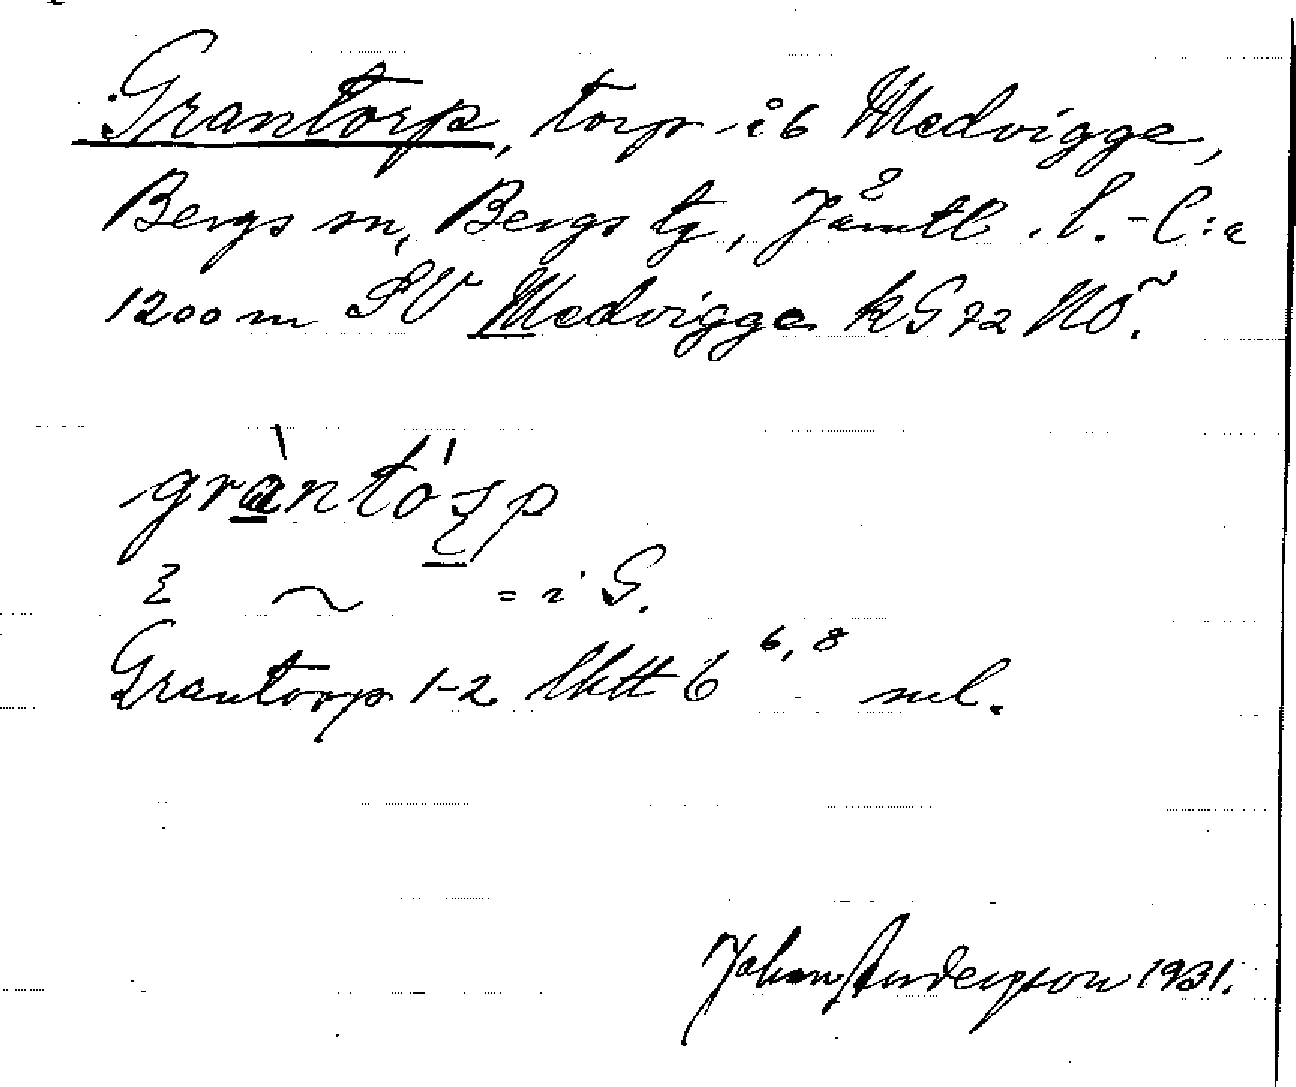 Grantorp, torp i b Medvigge,
Bergs sn, Bergs tg, Jämtl. l. - C:a
1200 m SV Medvigge k G 72 NÖ.
gràntórp
i G.
Grantorp 1-2 lktt 6 6, 8 ml.
Johan Andersson 1931.